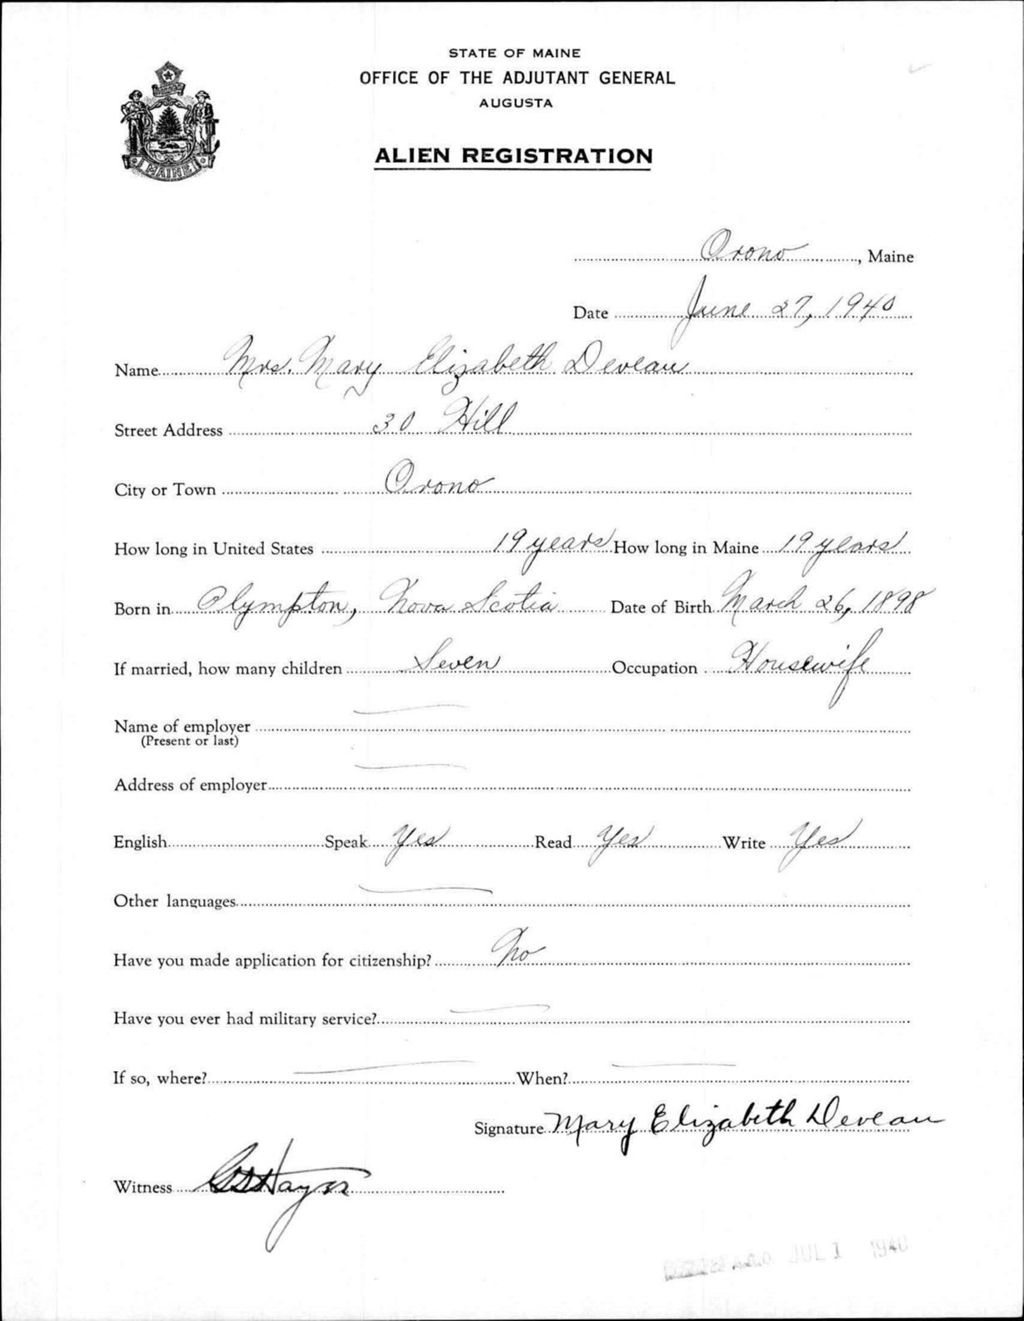 STATE OF MAINE
OFFICE OF THE ADJUTANT GENERAL
AUGUSTA
ALIEN REGISTRATION
MAINE
Orono, Maine
Date June 27, 1940
Name Mrs. Mary Elizabeth Deveau
Street Address 30 Hill
City or Town Orono
How long in United States 19 years How long in Maine 19 years
Born in Plympton, Nova Scotia Date of Birth March 26, 1898
If married, how many children Seven Occupation Housewife
Name of employer
(Present or last)
Address of employer
English Speak Yes Read Yes Write Yes
Other languages
Have you made application for citizenship? No
Have you ever had military service?
If so, where? When?
Signature Mary Elizabeth Deveau
Witness
A.G.O JUL 1 1940